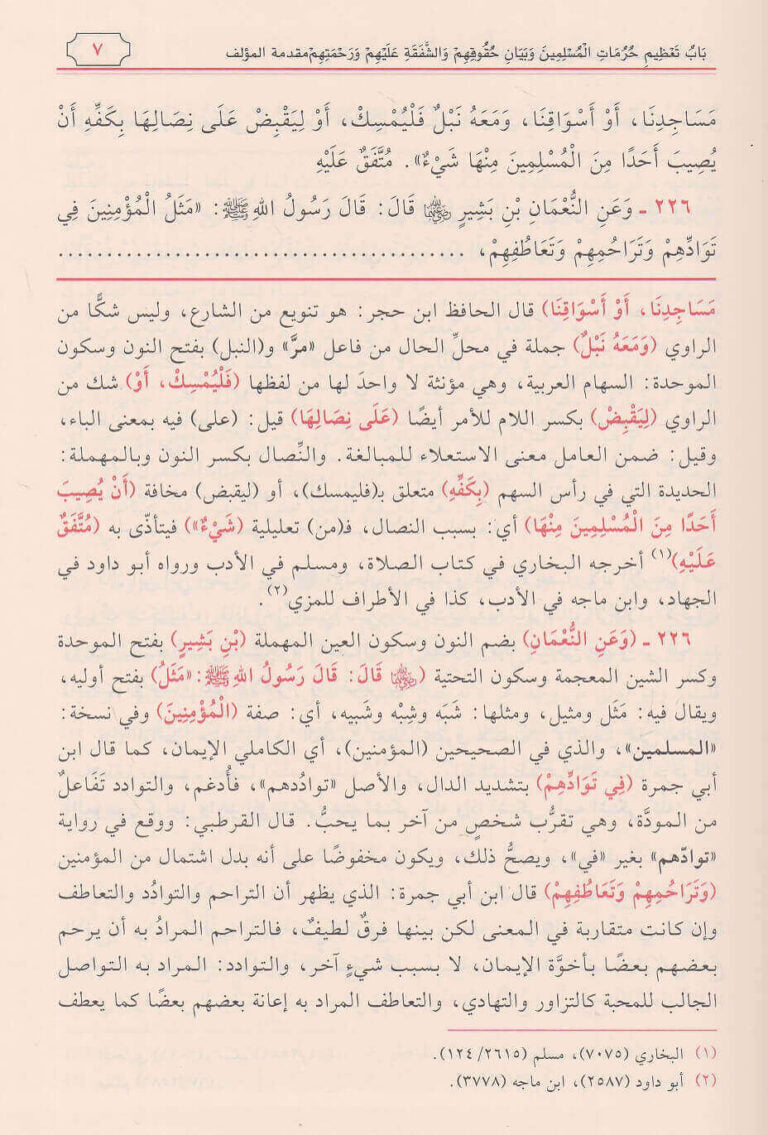 بَابُ تَعْظِيمِ حُرُمَاتِ الْمُسْلِمِينَ وَبَيَانِ حُقُوقِهِمْ وَالشَّفَقَةِ عَلَيْهِمْ وَرَحْمَتِهِمْ مقدمة المؤلف ٧
مَسَاجِدِنَا، أَوْ أَسْوَاقِنَا، وَمَعَهُ نَبْلٌ فَلْيُمْسِكْ، أَوْ لِيَقْبِضْ عَلَى نِصَالِهَا بِكَفِّهِ أَنْ
يُصِيبَ أَحَدًا مِنَ الْمُسْلِمِينَ مِنْهَا شَيْءٌ». مُتَّفَقٌ عَلَيْهِ
٢٢٦ ـ وَعَنِ النُّعْمَانِ بْنِ بَشِيرٍ رضي الله عنهما قَالَ: قَالَ رَسُولُ اللهِ ﷺ: «مَثَلُ الْمُؤْمِنِينَ فِي
تَوَادِّهِمْ وَتَرَاحُمِهِمْ وَتَعَاطُفِهِمْ، ........................................
مَسَاجِدِنَا، أَوْ أَسْوَاقِنَا) قال الحافظ ابن حجر: هو تنويع من الشارع، وليس شكًّا من
الراوي (وَمَعَهُ نَبْلٌ) جملة في محلِّ الحال من فاعل «مرَّ» و(النبل) بفتح النون وسكون
الموحدة: السهام العربية، وهي مؤنثة لا واحدَ لها من لفظها (فَلْيُمْسِكْ، أَوْ) شك من
الراوي (لِيَقْبِضْ) بكسر اللام للأمر أيضًا (عَلَى نِصَالِهَا) قيل: (على) فيه بمعنى الباء،
وقيل: ضمن العامل معنى الاستعلاء للمبالغة. والنِّصال بكسر النون وبالمهملة:
الحديدة التي في رأس السهم (بِكَفِّهِ) متعلق بـ(فليمسك)، أو (ليقبض) مخافة (أَنْ يُصِيبَ
أَحَدًا مِنَ الْمُسْلِمِينَ مِنْهَا) أي: بسبب النصال، فـ(من) تعليلية (شَيْءٌ») فيتأذّى به (مُتَّفَقٌ
عَلَيْهِ)(١) أخرجه البخاري في كتاب الصلاة، ومسلم في الأدب ورواه أبو داود في
الجهاد، وابن ماجه في الأدب، كذا في الأطراف للمزي(٢).
٢٢٦ ـ (وَعَنِ النُّعْمَانِ) بضم النون وسكون العين المهملة (بْنِ بَشِيرٍ) بفتح الموحدة
وكسر الشين المعجمة وسكون التحتية (رضي الله عنهما قَالَ: قَالَ رَسُولُ اللهِ ﷺ: «مَثَلُ) بفتح أوليه،
ويقال فيه: مَثَل ومثيل، ومثلها: شَبَه وشِبْه وشَبيه، أي: صفة (الْمُؤْمِنِينَ) وفي نسخة:
«المسلمين»، والذي في الصحيحين (المؤمنين)، أي الكاملي الإيمان، كما قال ابن
أبي جمرة (فِي تَوَادِّهِمْ) بتشديد الدال، والأصل «تواددهم»، فأُدغم، والتوادد تَفَاعلٌ
من المودَّة، وهي تقرُّب شخصٍ من آخر بما يحبُّ. قال القرطبي: ووقع في رواية
«توادّهم» بغير «في»، ويصحُّ ذلك، ويكون مخفوضًا على أنه بدل اشتمال من المؤمنين
(وَتَرَاحُمِهِمْ وَتَعَاطُفِهِمْ) قال ابن أبي جمرة: الذي يظهر أن التراحم والتوادُد والتعاطف
وإن كانت متقاربة في المعنى لكن بينها فرقٌ لطيفٌ، فالتراحم المرادُ به أن يرحم
بعضهم بعضًا بأخوَّة الإيمان، لا بسبب شيءٍ آخر، والتوادد: المراد به التواصل
الجالب للمحبة كالتزاور والتهادي، والتعاطف المراد به إعانة بعضهم بعضًا كما يعطف
(١) البخاري (٧٠٧٥)، مسلم (١٢٤/٢٦١٥).
(٢) أبو داود (٢٥٨٧)، ابن ماجه (٣٧٧٨).